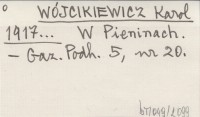 WÓJCIKIEWICZ Karol
1917... W Pieninach.
— Gaz. Podh. 5, nr 20.